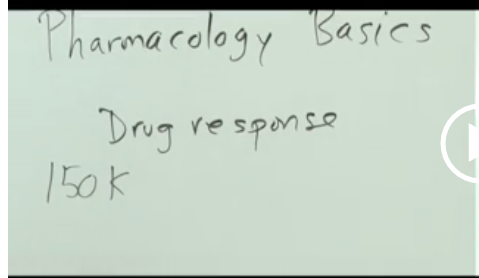 Pharmacology Basics
Drug response
150K